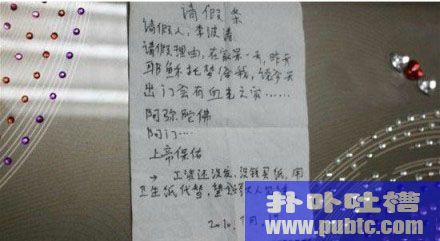 请假条
请假人：李波涛
请假理由：在家呆一天，昨天
耶稣托梦给我，说今天
出门会有血光之灾……
阿弥陀佛
阿门…
上帝保佑
→工资还没发，没钱买纸，用
卫生纸代替，望
2010
扑卟吐槽
www.pubtc.com